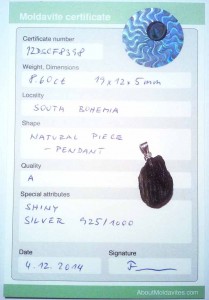 Moldavite certificate
Certificate number
Weight, Dimensions
8.60ct 19x12x5mm
Locality
SOUTH BOHEMIA
Shape
NATURAL PIECE
- PENDANT
Quality
A
Special attributes
SHINY
SILVER 925/1000
Date
Signature
4.12.2014
AboutMoldavites.com